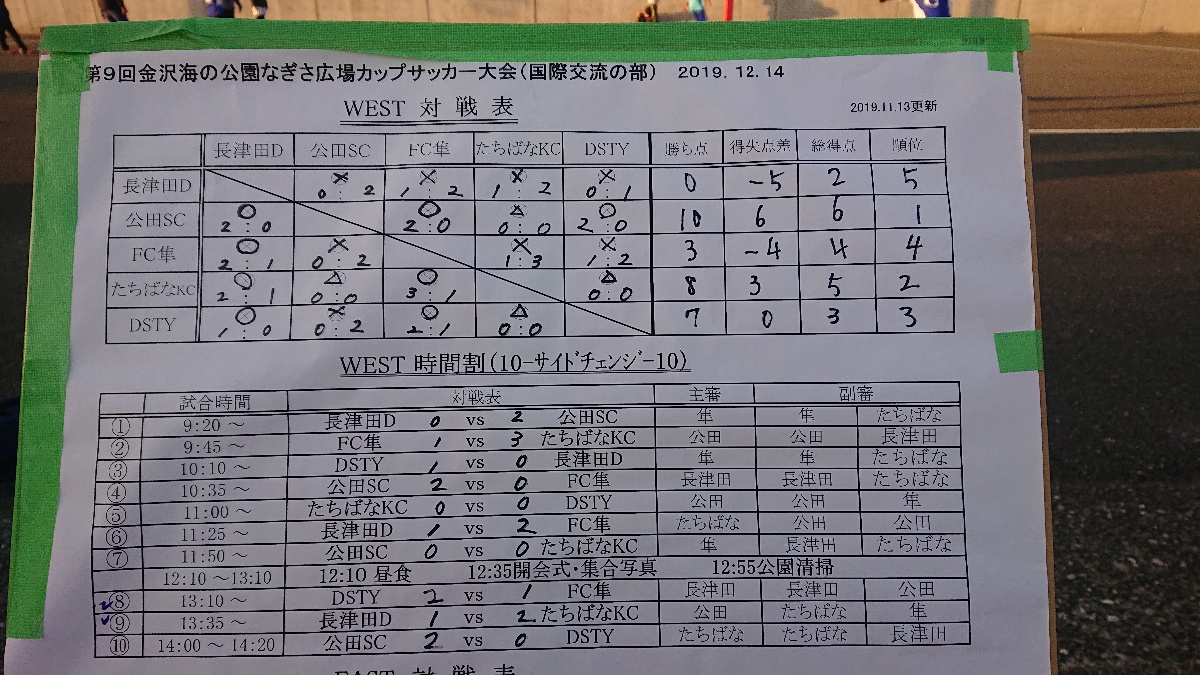 第9回金沢海の公園なぎさ広場カップサッカー大会(国際交流の部) 2019.12.14
WEST 対戦表
2019.11.13更新
長津田D 公田SC FC隼 たちばなKC DSTY 勝ち点 得失点差 総得点 順位
長津田D × 0:2 × 1:2 × 1:2 × 0:1 0 -5 2 5
公田SC ○ 2:0 ○ 2:0 △ 0:0 ○ 2:0 10 6 6 1
FC隼 ○ 2:1 × 0:2 × 1:3 × 1:2 3 -4 4 4
たちばなKC ○ 2:1 △ 0:0 ○ 3:1 △ 0:0 8 3 5 2
DSTY ○ 1:0 × 0:2 ○ 2:1 △ 0:0 7 0 3 3
WEST 時間割(10-サイドチェンジ-10)
試合時間 対戦表 主審 副審
① 9:20~ 長津田D 0 vs 2 公田SC 隼 隼 たちばな
② 9:45~ FC隼 1 vs 3 たちばなKC 公田 公田 長津田
③ 10:10~ DSTY 1 vs 0 長津田D 隼 隼 たちばな
④ 10:35~ 公田SC 2 vs 0 FC隼 長津田 長津田 たちばな
⑤ 11:00~ たちばなKC 0 vs 0 DSTY 公田 公田 隼
⑥ 11:25~ 長津田D 1 vs 2 FC隼 たちばな 公田 公田
⑦ 11:50~ 公田SC 0 vs 0 たちばなKC 隼 長津田 たちばな
12:10~13:10 12:10 昼食 12:35開会式・集合写真 12:55公園清掃
⑧ 13:10~ DSTY 2 vs 1 FC隼 長津田 長津田 公田
⑨ 13:35~ 長津田D 1 vs 2 たちばなKC 公田 たちばな 隼
⑩ 14:00~14:20 公田SC 2 vs 0 DSTY たちばな たちばな 長津田
EAST 対戦表